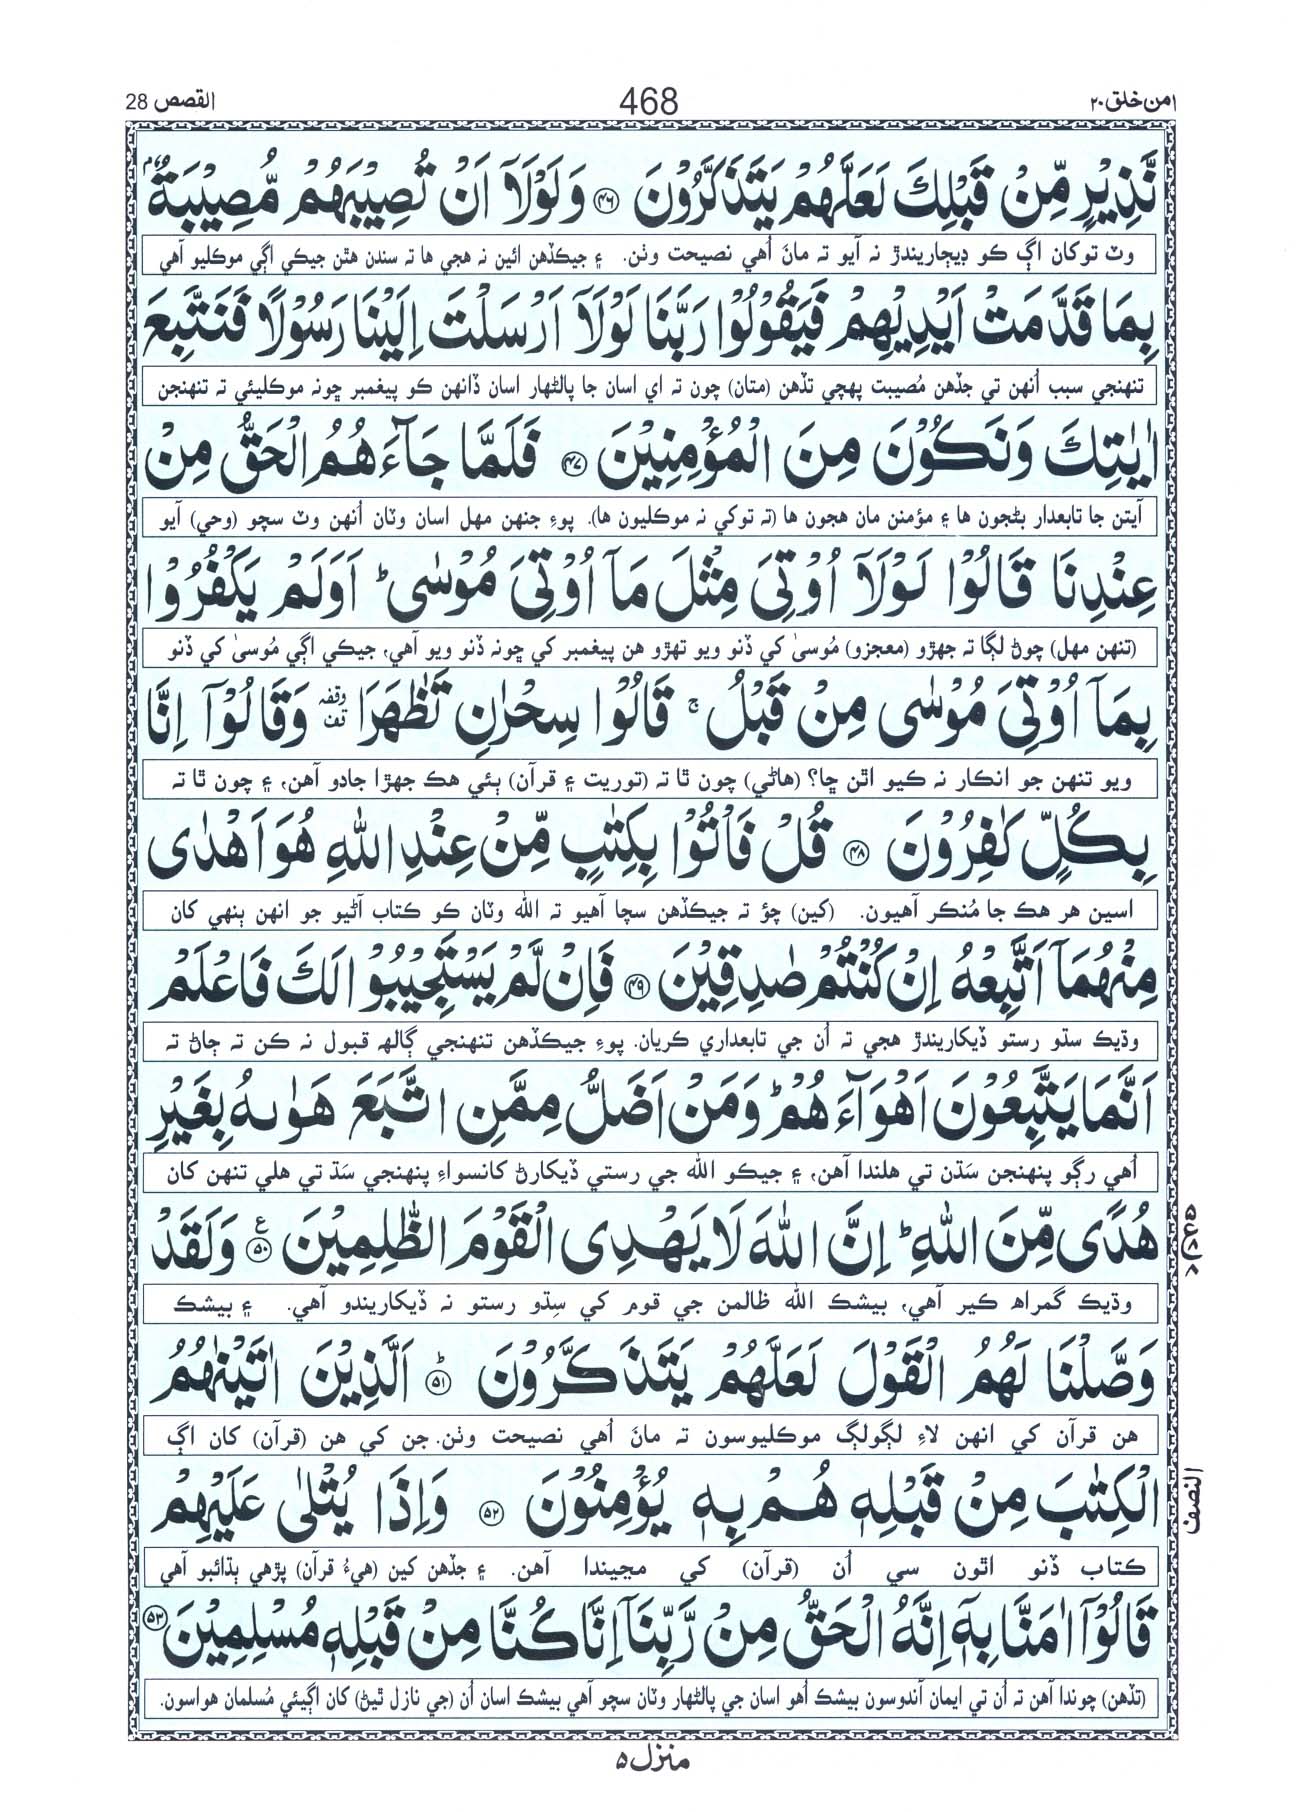 امن خلق ٢٠ 468 القصص 28
نَّذِيْرٍ مِّنْ قَبْلِكَ لَعَلَّهُمْ يَتَذَكَّرُوْنَ ﴿۴۶﴾ وَلَوْلَاۤ اَنْ تُصِيْبَهُمْ مُّصِيْبَةٌۢ
وٽ توکان اڳ ڪو ڊيڄاريندڙ نہ آيو تہ مانَ اُهي نصيحت وٺن. ۽ جيڪڏهن ائين نہ هجي ها تہ سندن هٿن جيڪي اڳي موڪليو آهي
بِمَا قَدَّمَتْ اَيْدِيْهِمْ فَيَقُوْلُوْا رَبَّنَا لَوْلَاۤ اَرْسَلْتَ اِلَيْنَا رَسُوْلًا فَنَتَّبِعَ
تنهنجي سبب اُنهن تي جڏهن مُصيبت پهچي تڏهن (متان) چون تہ اي اسان جا پالڻهار اسان ڏانهن ڪو پيغمبر ڇونہ موڪليئي تہ تنهنجن
اٰيٰتِكَ وَنَكُوْنَ مِنَ الْمُؤْمِنِيْنَ ﴿۴۷﴾ فَلَمَّا جَآءَهُمُ الْحَقُّ مِنْ
آيتن جا تابعدار بڻجون ها ۽ مؤمنن مان هجون ها (تہ توکي نہ موڪليون ها). پوءِ جنهن مهل اسان وٽان اُنهن وٽ سچو (وحي) آيو
عِنْدِنَا قَالُوْا لَوْلَاۤ اُوْتِيَ مِثْلَ مَاۤ اُوْتِيَ مُوْسٰى ؕ اَوَلَمْ يَكْفُرُوْا
(تنهن مهل) چوڻ لڳا تہ جهڙو (معجزو) مُوسىٰ کي ڏنو ويو تهڙو هن پيغمبر کي ڇونہ ڏنو ويو آهي، جيڪي اڳي مُوسىٰ کي ڏنو
بِمَاۤ اُوْتِيَ مُوْسٰى مِنْ قَبْلُ ۚ قَالُوْا سِحْرٰنِ تَظٰهَرَا وقفہ وَقَالُوْۤا اِنَّا
ويو تنهن جو انڪار نہ ڪيو اٿن ڇا؟ (هاڻي) چون ٿا تہ (توريت ۽ قرآن) ٻئي هڪ جهڙا جادو آهن، ۽ چون ٿا تہ
بِكُلٍّ كٰفِرُوْنَ ﴿۴۸﴾ قُلْ فَاْتُوْا بِكِتٰبٍ مِّنْ عِنْدِ اللّٰهِ هُوَ اَهْدٰى
اسين هر هڪ جا مُنڪر آهيون. (کين) چؤ تہ جيڪڏهن سچا آهيو تہ الله وٽان ڪو ڪتاب آڻيو جو انهن ٻنهي کان
مِنْهُمَاۤ اَتَّبِعْهُ اِنْ كُنْتُمْ صٰدِقِيْنَ ﴿۴۹﴾ فَاِنْ لَّمْ يَسْتَجِيْبُوْا لَكَ فَاعْلَمْ
وڌيڪ سڌو رستو ڏيکاريندڙ هجي تہ اُن جي تابعداري ڪريان. پوءِ جيڪڏهن تنهنجي ڳالهہ قبول نہ ڪن تہ ڄاڻ تہ
اَنَّمَا يَتَّبِعُوْنَ اَهْوَآءَهُمْ ؕ وَمَنْ اَضَلُّ مِمَّنِ اتَّبَعَ هَوٰىهُ بِغَيْرِ
اُهي رڳو پنهنجن سَڌن تي هلندا آهن، ۽ جيڪو الله جي رستي ڏيکارڻ کانسواءِ پنهنجي سَڌ تي هلي تنهن کان
هُدًى مِّنَ اللّٰهِ ؕ اِنَّ اللّٰهَ لَا يَهْدِى الْقَوْمَ الظّٰلِمِيْنَ ﴿۵۰﴾ ع وَلَقَدْ
وڌيڪ گمراھ ڪير آهي، بيشڪ الله ظالمن جي قوم کي سِڌو رستو نہ ڏيکاريندو آهي. ۽ بيشڪ
وَصَّلْنَا لَهُمُ الْقَوْلَ لَعَلَّهُمْ يَتَذَكَّرُوْنَ ﴿۵۱﴾ ؕ اَلَّذِيْنَ اٰتَيْنٰهُمُ
هن قرآن کي انهن لاءِ لڳولڳ موڪليوسون تہ مانَ اُهي نصيحت وٺن. جن کي هن (قرآن) کان اڳ
الْكِتٰبَ مِنْ قَبْلِهٖ هُمْ بِهٖ يُؤْمِنُوْنَ ﴿۵۲﴾ وَاِذَا يُتْلٰى عَلَيْهِمْ
النصف
ڪتاب ڏنو اٿون سي اُن (قرآن) کي مڃيندا آهن. ۽ جڏهن کين (هيءُ قرآن) پڙهي ٻڌائبو آهي
قَالُوْۤا اٰمَنَّا بِهٖۤ اِنَّهُ الْحَقُّ مِنْ رَّبِّنَاۤ اِنَّا كُنَّا مِنْ قَبْلِهٖ مُسْلِمِيْنَ ﴿۵۳﴾
(تڏهن) چوندا آهن تہ اُن تي ايمان آندوسون بيشڪ اُهو اسان جي پالڻهار وٽان سچو آهي بيشڪ اسان اُن (جي نازل ٿيڻ) کان اڳيئي مُسلمان هواسون.
منزل ۵